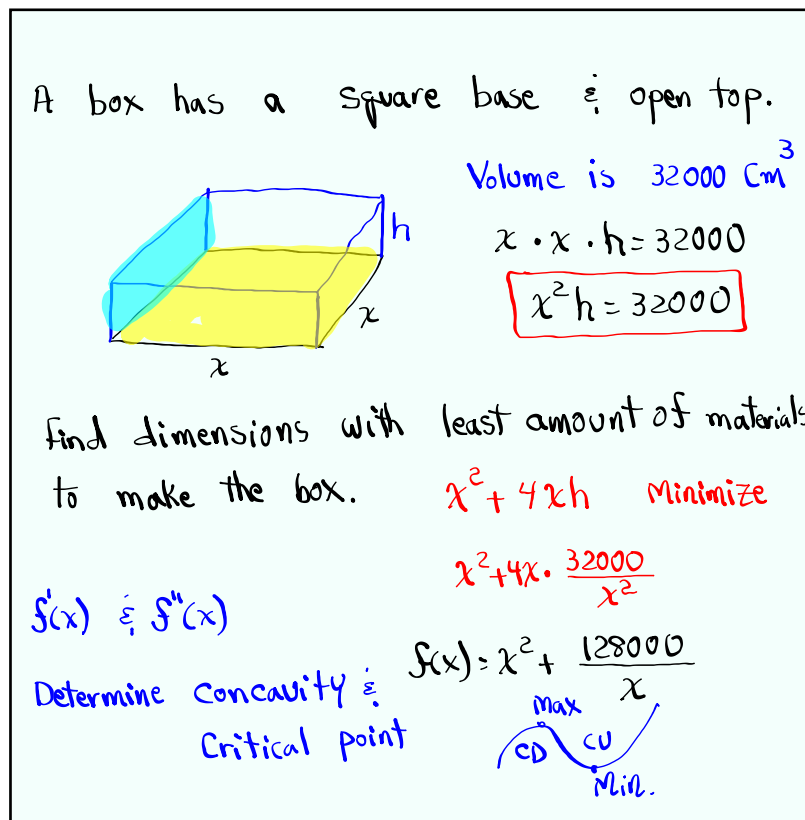 A box has a square base & open top.
Volume is 32000 Cm³
h
x · x · h = 32000
x²h = 32000
x
x
Find dimensions with least amount of materials
to make the box.
x² + 4xh Minimize
x² + 4x · 32000/x²
f'(x) & f''(x)
f(x) = x² + 128000/x
Determine Concavity &
Critical point
Max
CD
CU
Min.